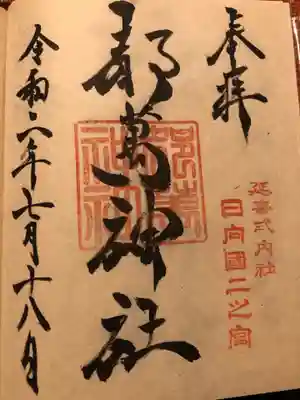 奉拝
延喜式内社
日向國二之宮
都萬神社
都萬
神社
令和六年七月十八日